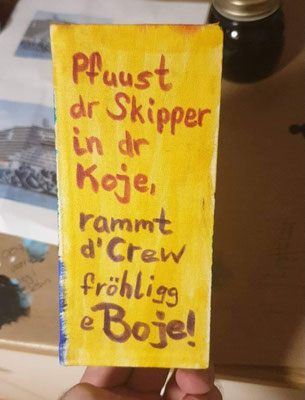 Pfuust
dr Skipper
in dr
Koje,
rammt
d'Crew
fröhligg
e Boje!